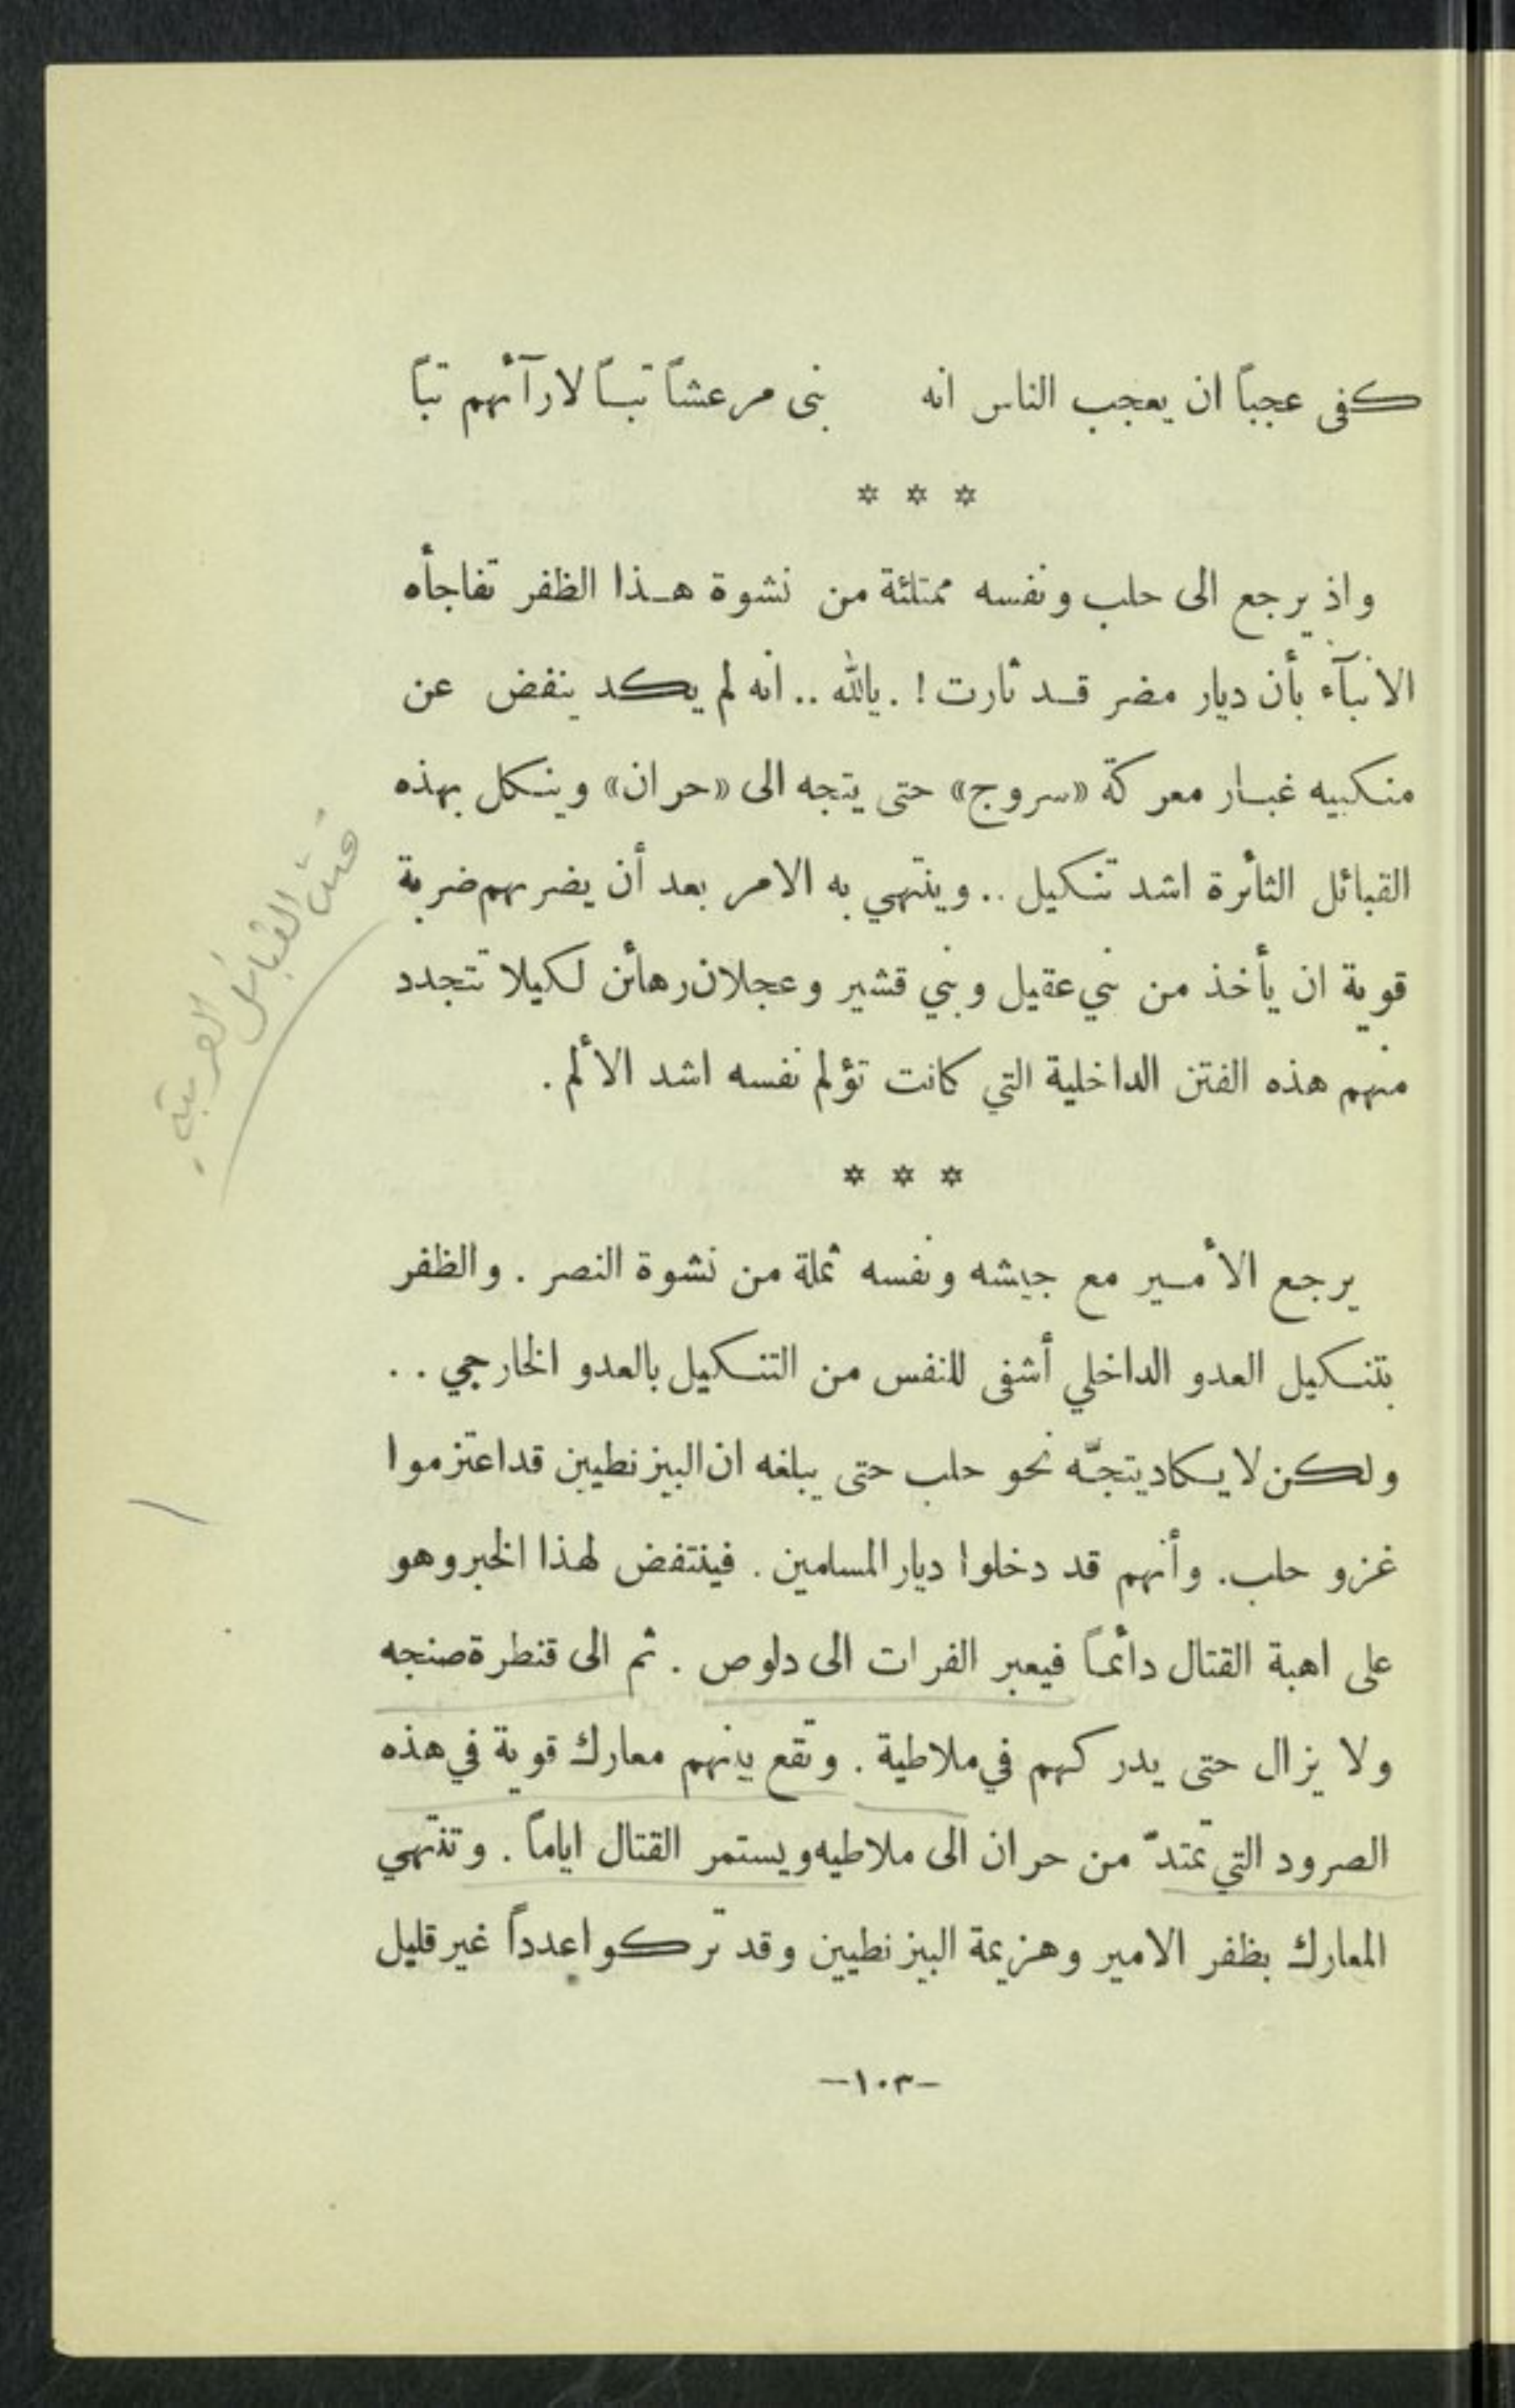 كفى عجباً ان يعجب الناس انه بنى مرعشاً تبـاً لارآئهم تباً
* * *
واذ يرجع الى حلب ونفسه ممتلئة من نشوة هـذا الظفر تفاجأه
الانبآء بأن ديار مضر قـد ثارت ! . يالله .. انه لم يكد ينفض عن
منكبيه غبـار معركة «سروج» حتى يتجه الى «حران» وينكل بهذه
القبائل الثائرة اشد تنكيل .. وينتهي به الامر بعد أن يضربهم ضربة
قوية ان يأخذ من بني عقيل وبني قشير وعجلان رهائن لكيلا تتجدد
منهم هذه الفتن الداخلية التي كانت تؤلم نفسه اشد الألم .
* * *
يرجع الأمـير مع جيشه ونفسه ثملة من نشوة النصر . والظفر
بتنكيل العدو الداخلي أشفى للنفس من التنكيل بالعدو الخارجي . .
ولكن لا يكاد يتجّه نحو حلب حتى يبلغه ان البيزنطيين قد اعتزموا
غزو حلب. وأنهم قد دخلوا ديار المسلمين . فينتفض لهذا الخبر وهو
على اهبة القتال دائمـاً فيعبر الفرات الى دلوص . ثم الى قنطرة صنجه
ولا يزال حتى يدركهم في ملاطية . وتقع بينهم معارك قوية في هذه
الصرود التي تمتدّ من حران الى ملاطيه ويستمر القتال اياماً . وتنتهي
المعارك بظفر الامير وهزيمة البيزنطيين وقد تركوا عدداً غير قليل
فتن القبائل العربية .
-١٠٣-